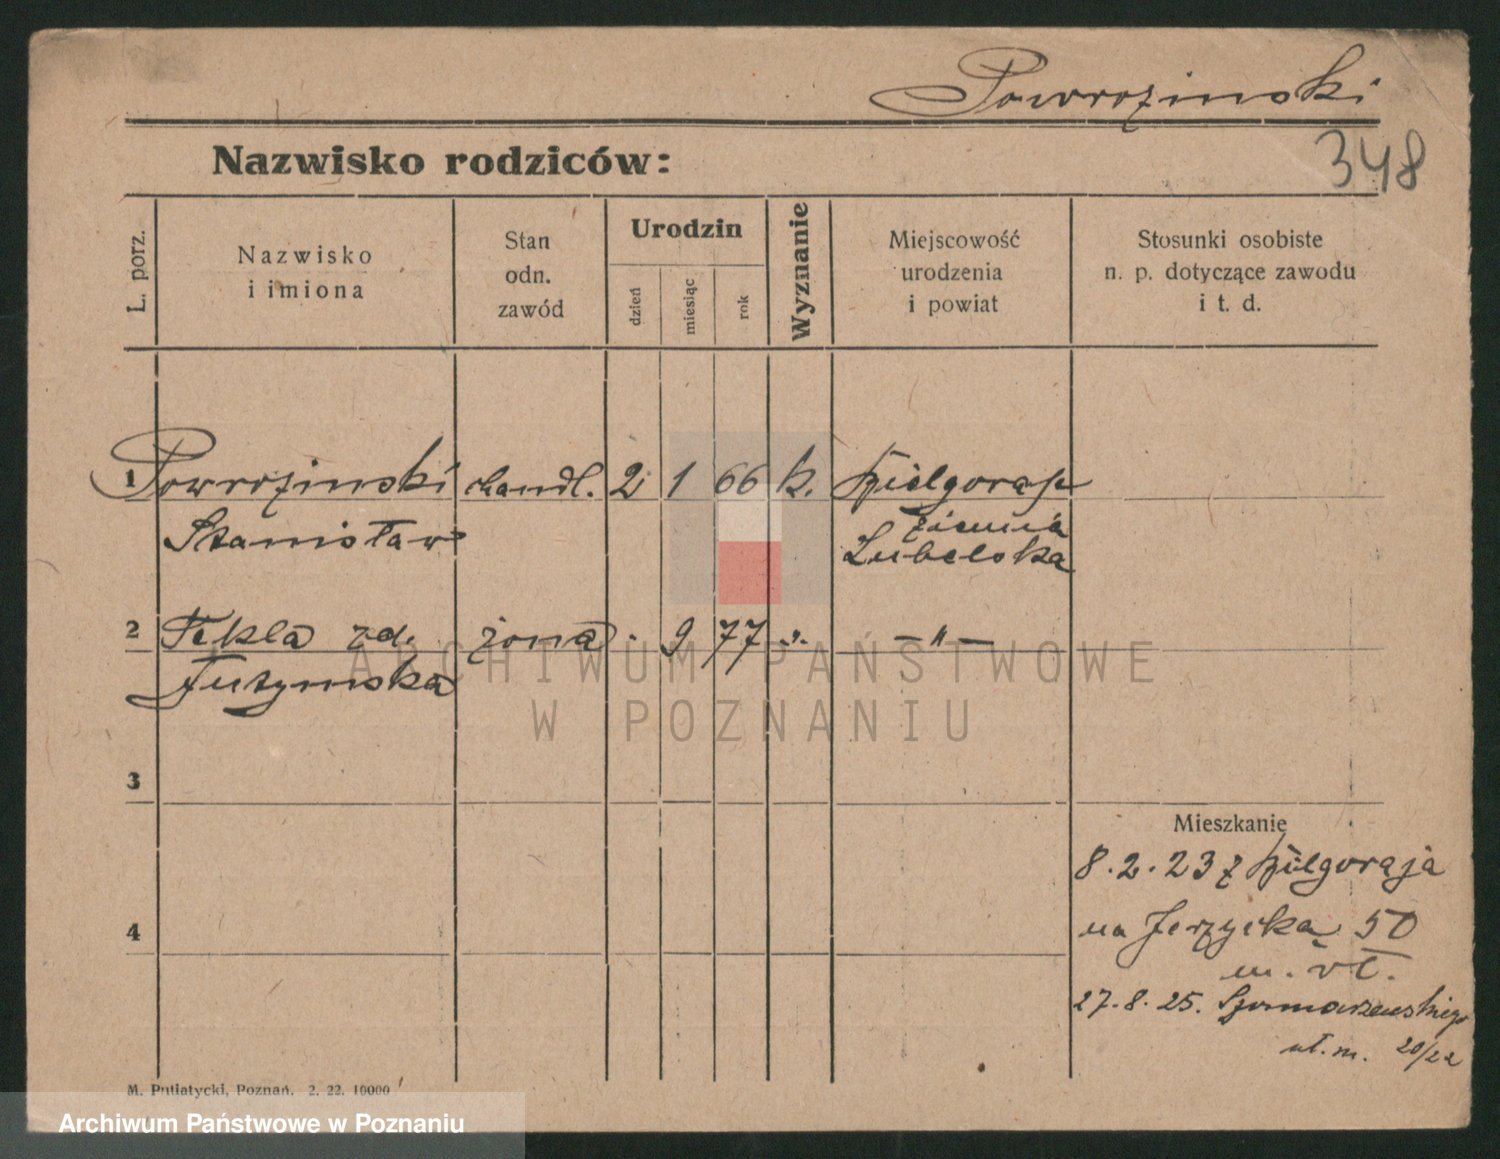 Powrozinski
348
Nazwisko rodziców:
L. porz.
Nazwisko
i imiona
Stan
odn.
zawód
Urodzin
dzień
miesiąc
rok
Wyznanie
Miejscowość
urodzenia
i powiat
Stosunki osobiste
n. p. dotyczące zawodu
i t. d.
1 Powrozinski handl. 2 1 66 k.
Stanisław ziemia
Lubelska
2 Tekla zd. żona . 9 77 „ — „ —
3
Mieszkanie
8.2.23 z
4
na Jerzycka 50
m. wł.
27.8.25. Szamarzewskiego
wł. m. 20/22
M. Putiatycki, Poznań. 2. 22. 10000
ARCHIWUM PAŃSTWOWE
W POZNANIU
Archiwum Państwowe w Poznaniu